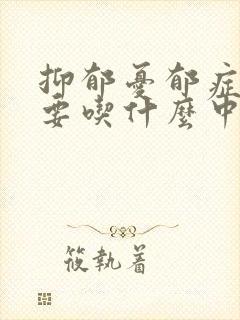 抑郁憂郁症
要喫什麼中
筱執着